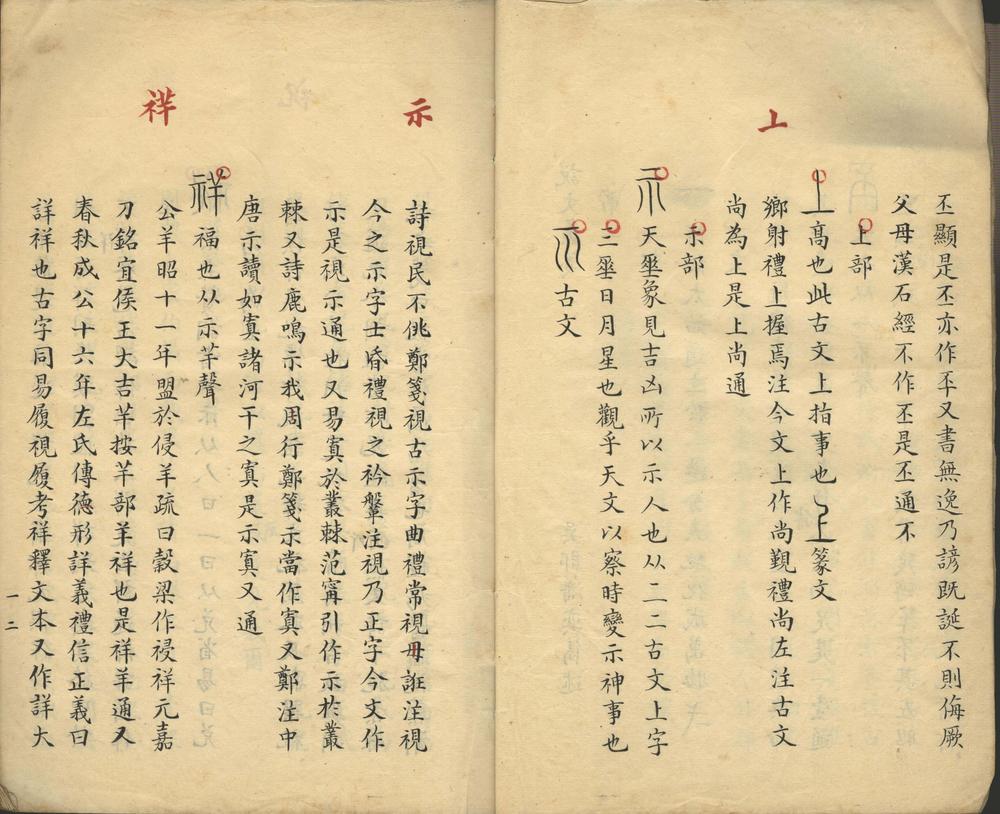 丕顯是丕亦作㔻又書無逸乃諺既誕不則侮厥
父母漢石經不作丕是丕通不
上
上部
丄高也此古文上指事也𠄞篆文
鄉射禮上握焉注今文上作尚覲禮尚左注古文
尚為上是上尚通
示部
示天𠂹象見吉凶所以示人也从二二古文上字
三𠂹日月星也觀乎天文以察時變示神事也
𥘅古文
示
詩視民不佻鄭箋視古示字曲禮常視毋誑注視
今之示字士昏禮視之衿鞶注視乃正字今文作
示是視示通也又易寘於叢棘范甯引作示於叢
棘又詩鹿鳴示我周行鄭箋示當作寘又鄭注中
唐示讀如寘諸河干之寘是示寘又通
祥
祥福也从示羊聲
公羊昭十一年盟於侵羊疏曰穀梁作祲祥元嘉
刀銘宜侯王大吉羊按羊部羊祥也是祥羊通又
春秋成公十六年左氏傳德形詳義禮信正義曰
詳祥也古字同易履視履考祥釋文本又作詳大
一二